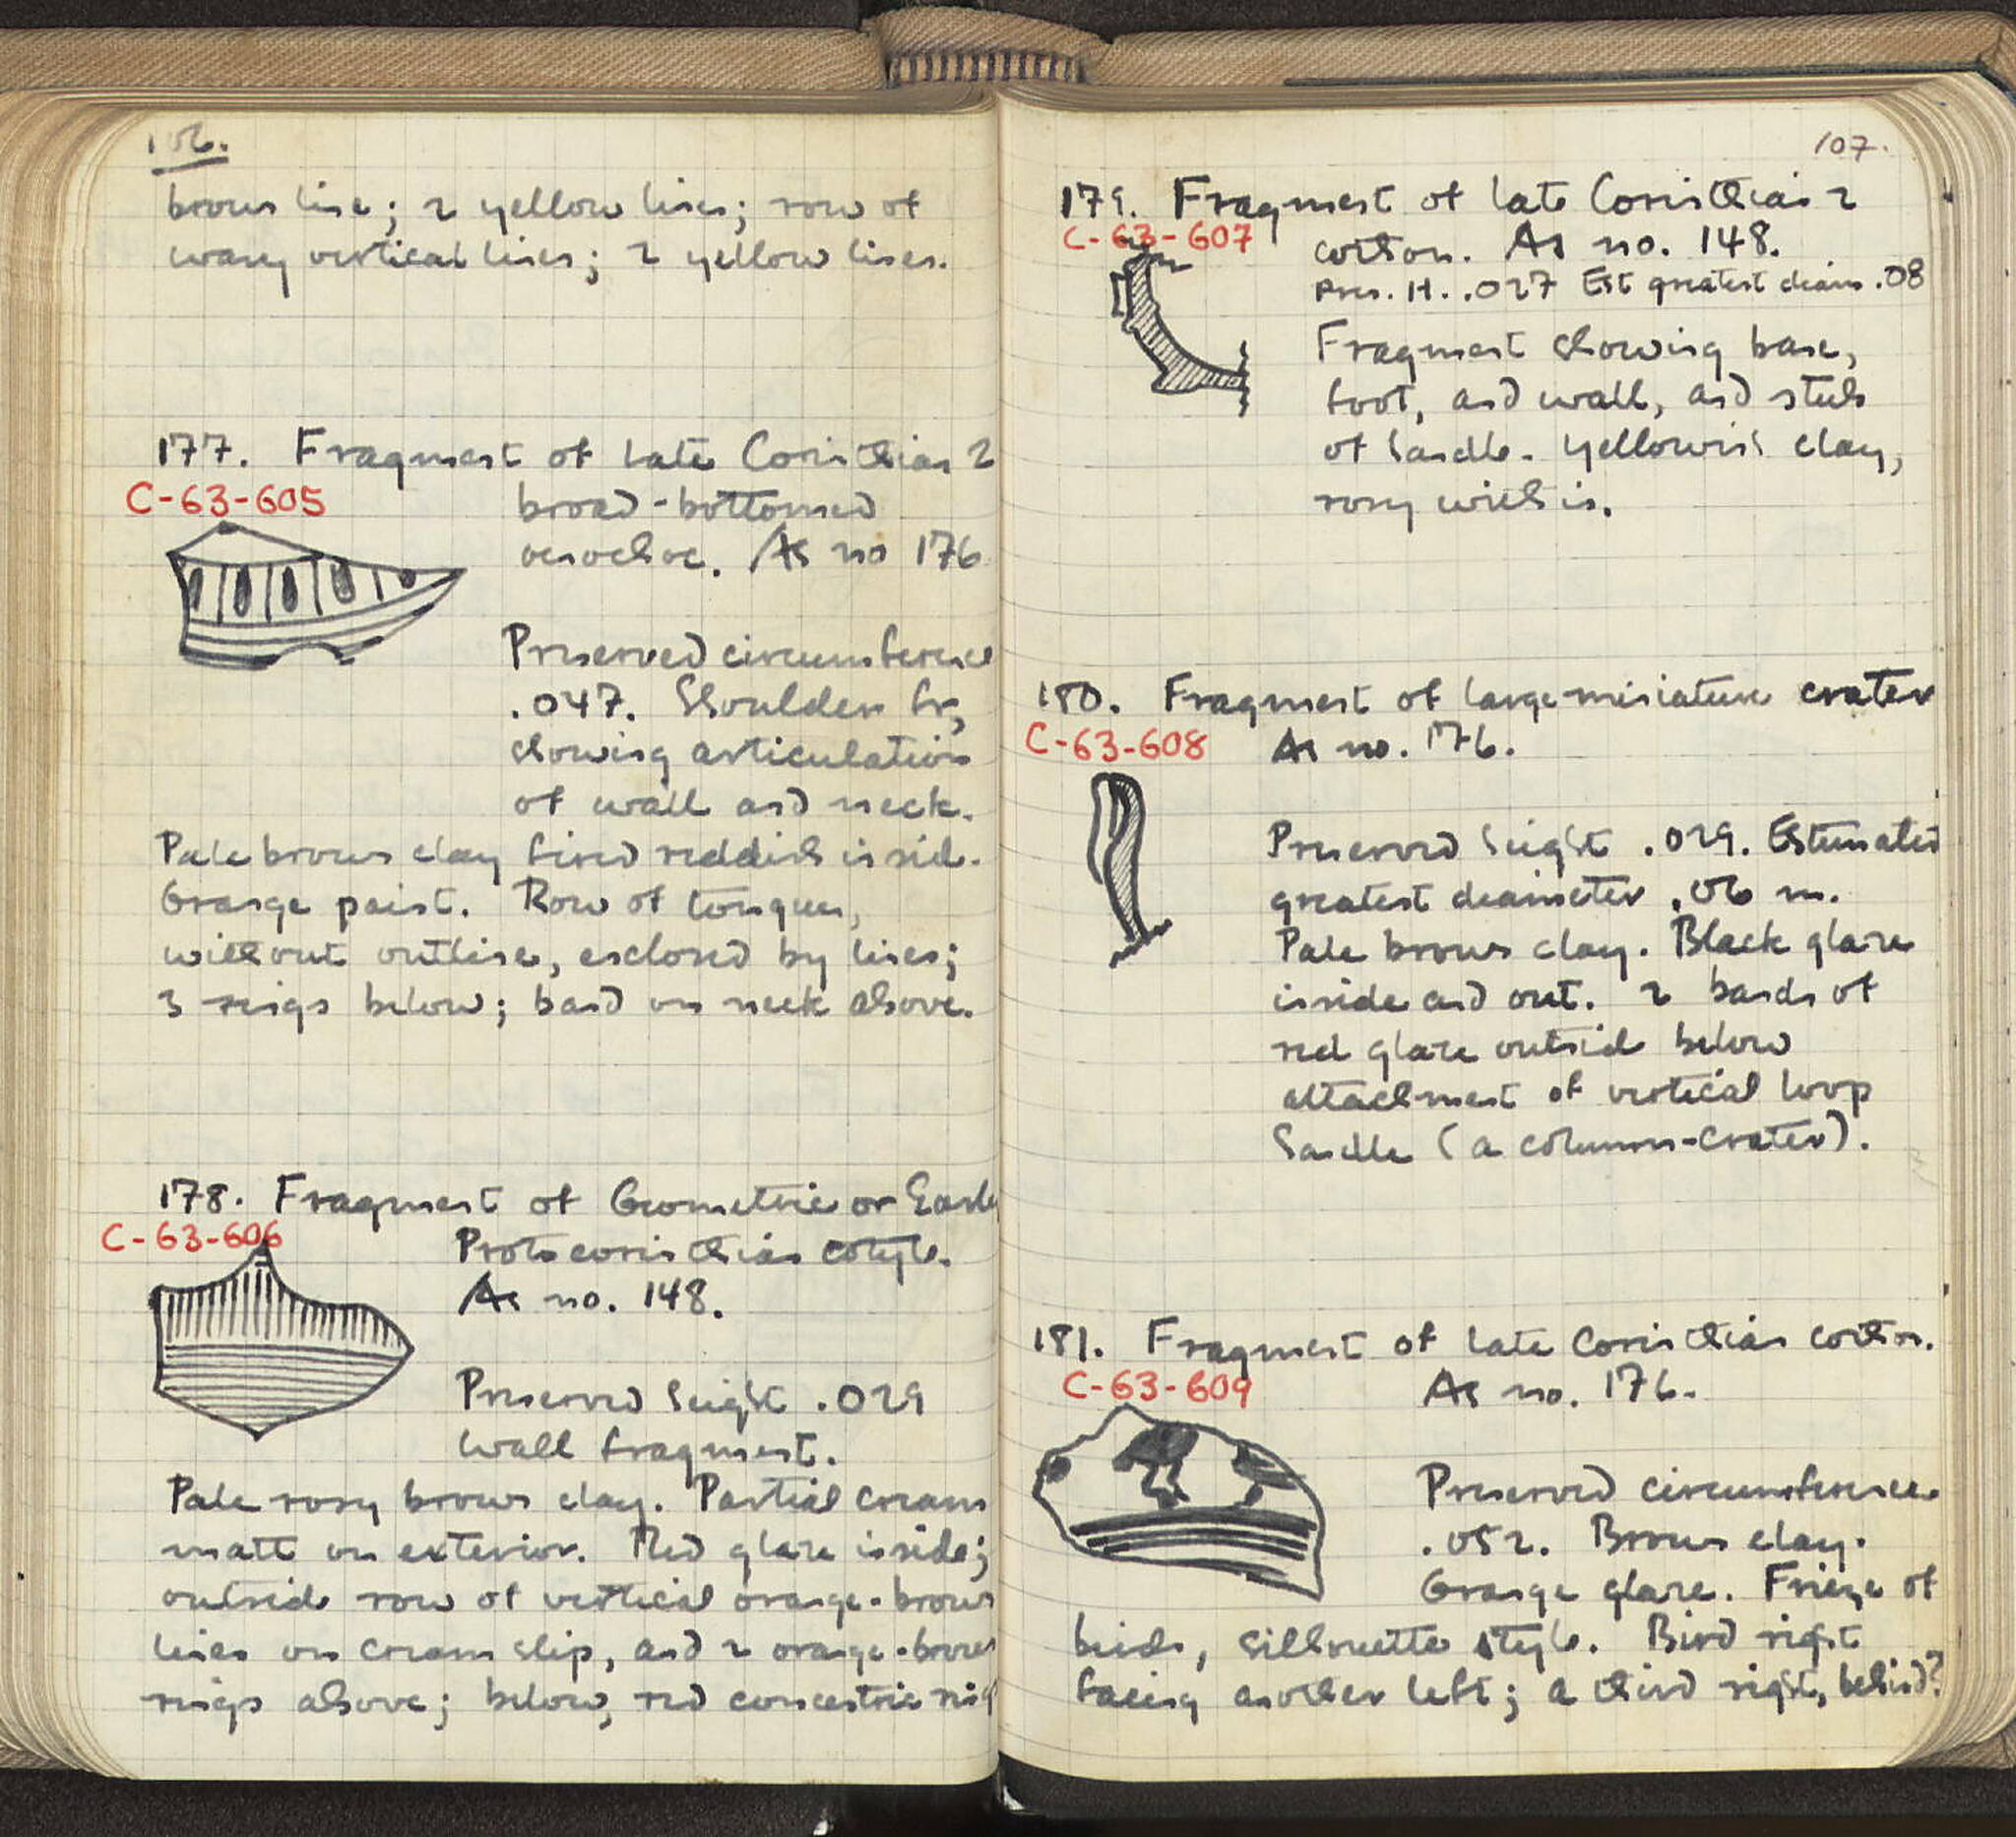 106.
brown line; 2 yellow lines; row of
wavy vertical lines; 2 yellow lines.
177. Fragment of Late Corinthian 2
C-63-605
broad-bottomed
oenochoe. As no 176
Preserved circumference
.047. Shoulder fr,
showing articulation
of wall and neck.
Pale brown clay fired reddish inside.
Orange paint. Row of tongues,
without outline, enclosed by lines;
3 rings below; band on neck above.
178. Fragment of Geometric or Early
C-63-606
Protocorinthian cotyle.
As no. 148.
Preserved height .029
Wall fragment.
Pale rosy brown clay. Partial cream
matt on exterior. Red glaze inside;
outside row of vertical orange-brown
lines on cream slip, and 2 orange-brown
rings above; below, red concentric rings
107.
179. Fragment of Late Corinthian 2
C-63-607
cothon. As no. 148.
Pres. H. .027 Est greatest diam .08
Fragment showing base,
foot, and wall, and stub
of handle. Yellowish clay,
rosy within.
180. Fragment of large miniature crater
C-63-608
As no. 176.
Preserved height .029. Estimated
greatest diameter .06 m.
Pale brown clay. Black glaze
inside and out. 2 bands of
red glaze outside below
attachment of vertical loop
handle (a column-crater).
181. Fragment of Late Corinthian cothon.
C-63-609
As no. 176.
Preserved circumference
.052. Brown clay.
Orange glaze. Frieze of
birds, silhouette style. Bird right
facing another left; a third right, behind?